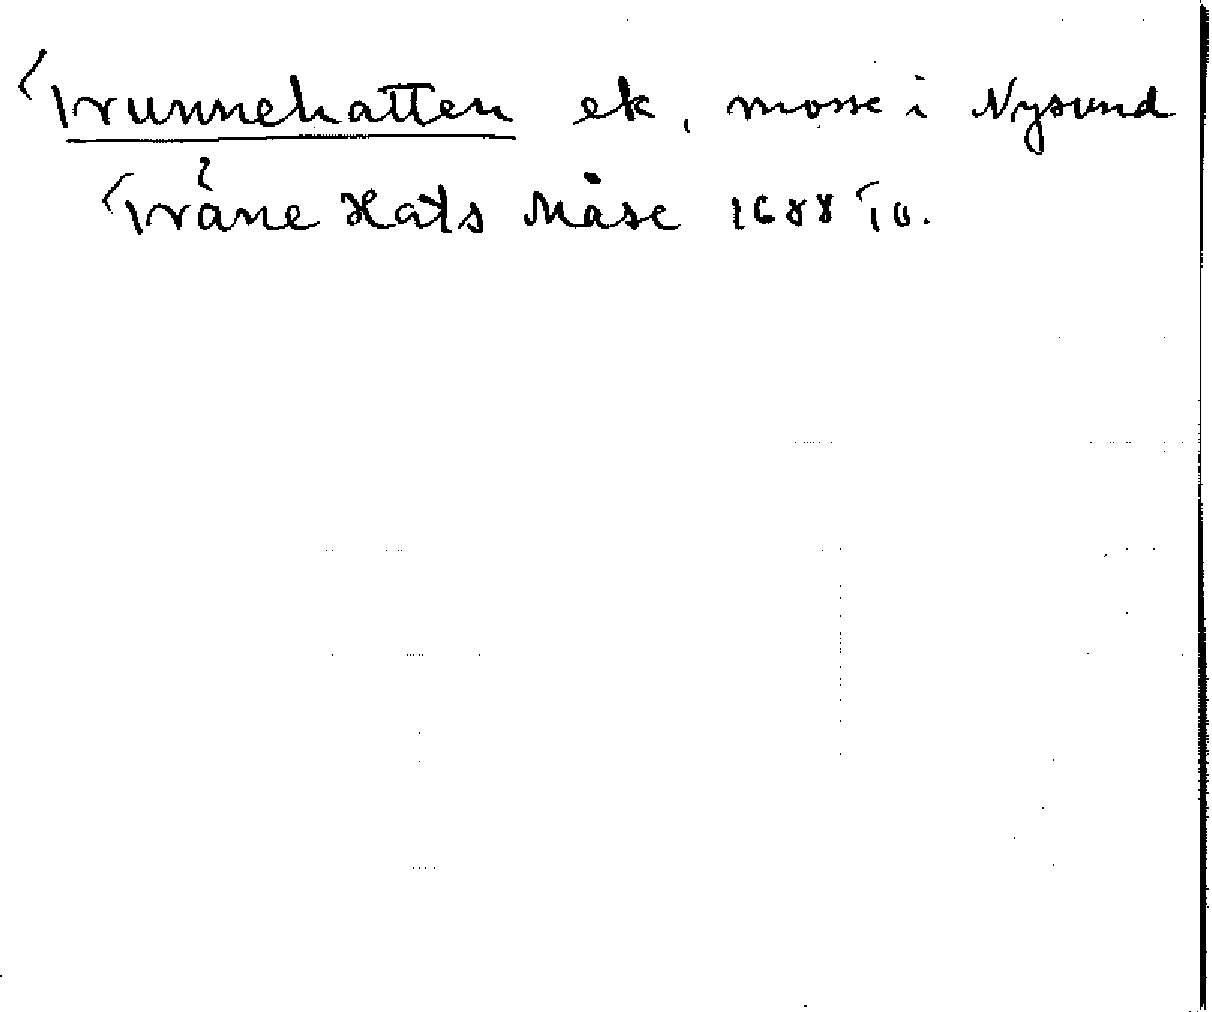 Trunnehatten ek, mosse i Nysund
Tråne Hats Måse 1688 To.